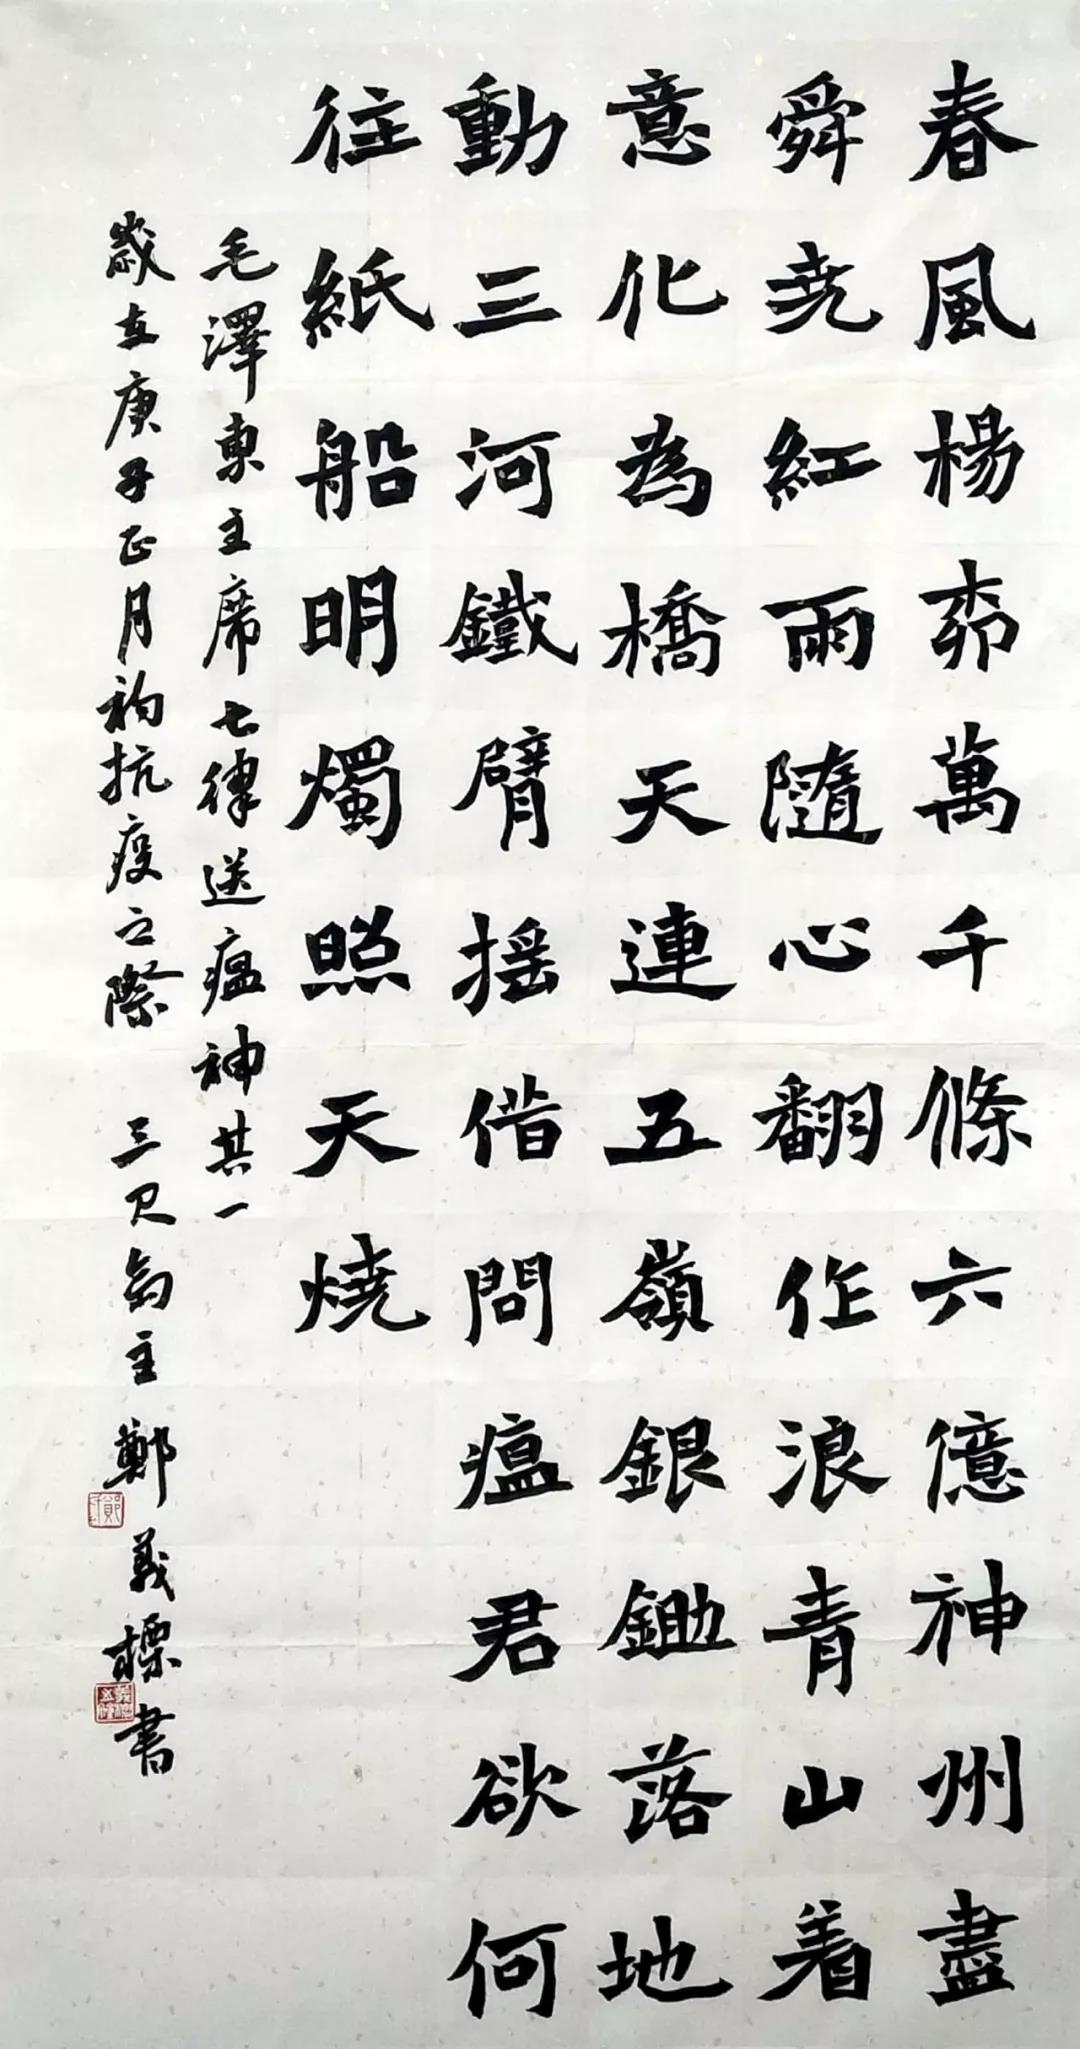 春風楊柳萬千條六億神州盡
舜尭紅雨隨心翻作浪青山着
意化為橋天連五嶺銀鋤落地
動三河鐵臂揺借問瘟君欲何
往紙船明燭照天燒
毛澤東主席七律送瘟神其一
歲在庚子正月初抗疫之際 三尺齋主鄭義標書